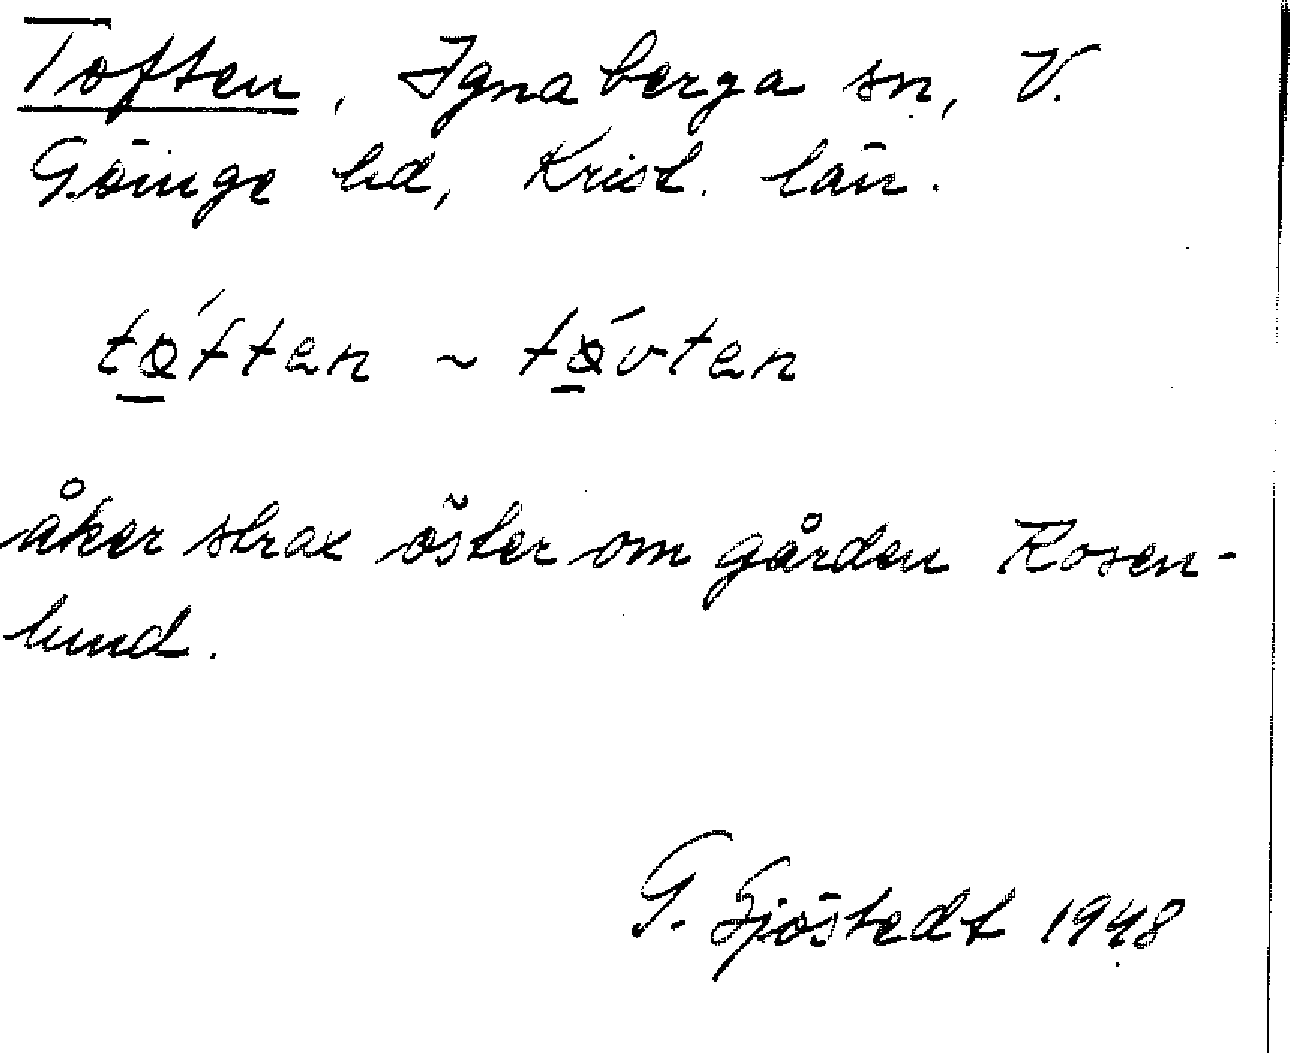 Toften, Ignaberga sn, V.
Göinge hd, Krist. län.
tǫ́ften ~ tǫ́vten
åker strax öster om gården Rosen-
lund.
G. Sjöstedt 1948